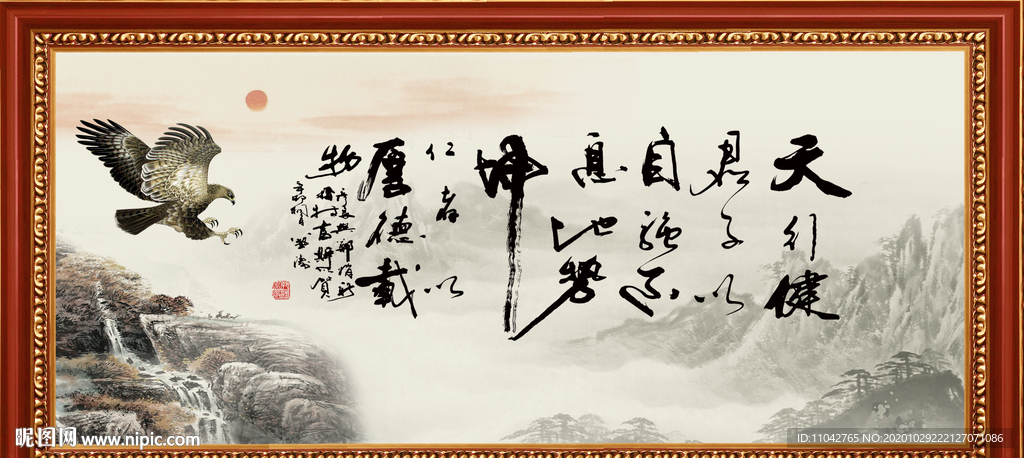 天行健
君子以
自強不
息地勢
坤
仁者以
厚德載
物
昵图网 www.nipic.com
ID:11042765 NO:20201029222127071086